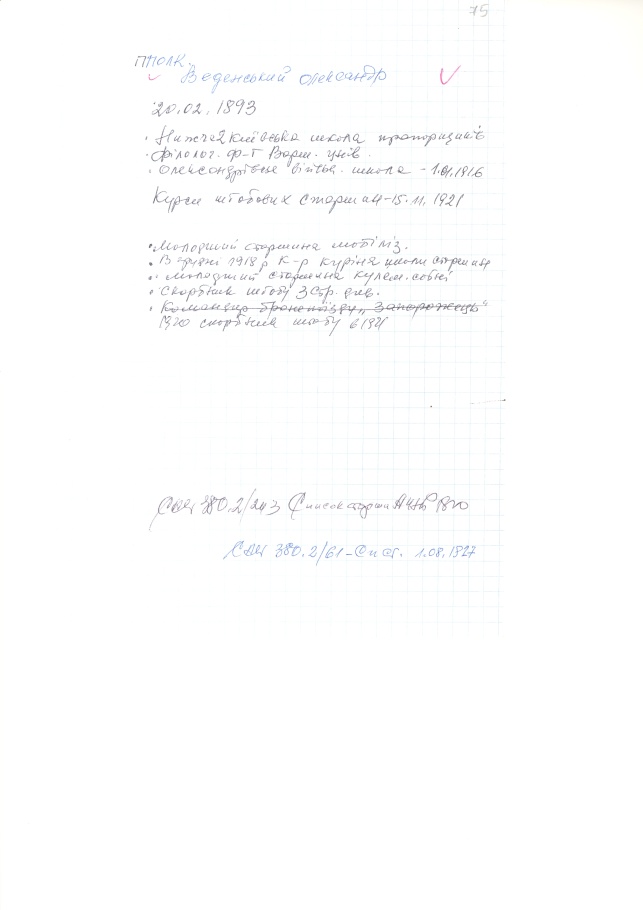 75
ППОЛК.
Веденський Олександр
20.02.1893
• школа прапорщиків
• філолог. ф-т Варш. унів.
• Олександрівська військ. школа - 1.01.1916
Курси штабових старшин - 15.11.1921
• Молодший старшина мобіліз.
• В грудні 1918 р к-р куріня школи старшин
• Молодший старшина кулем. сотні
• Скарбник штабу 3 Стр. див.
• Командир бронепоїзду „Запорожець"
1920 скарбник штабу 6
380.2/243 Список старшин 1920
380.2/61 - Спис. 1.08.1927